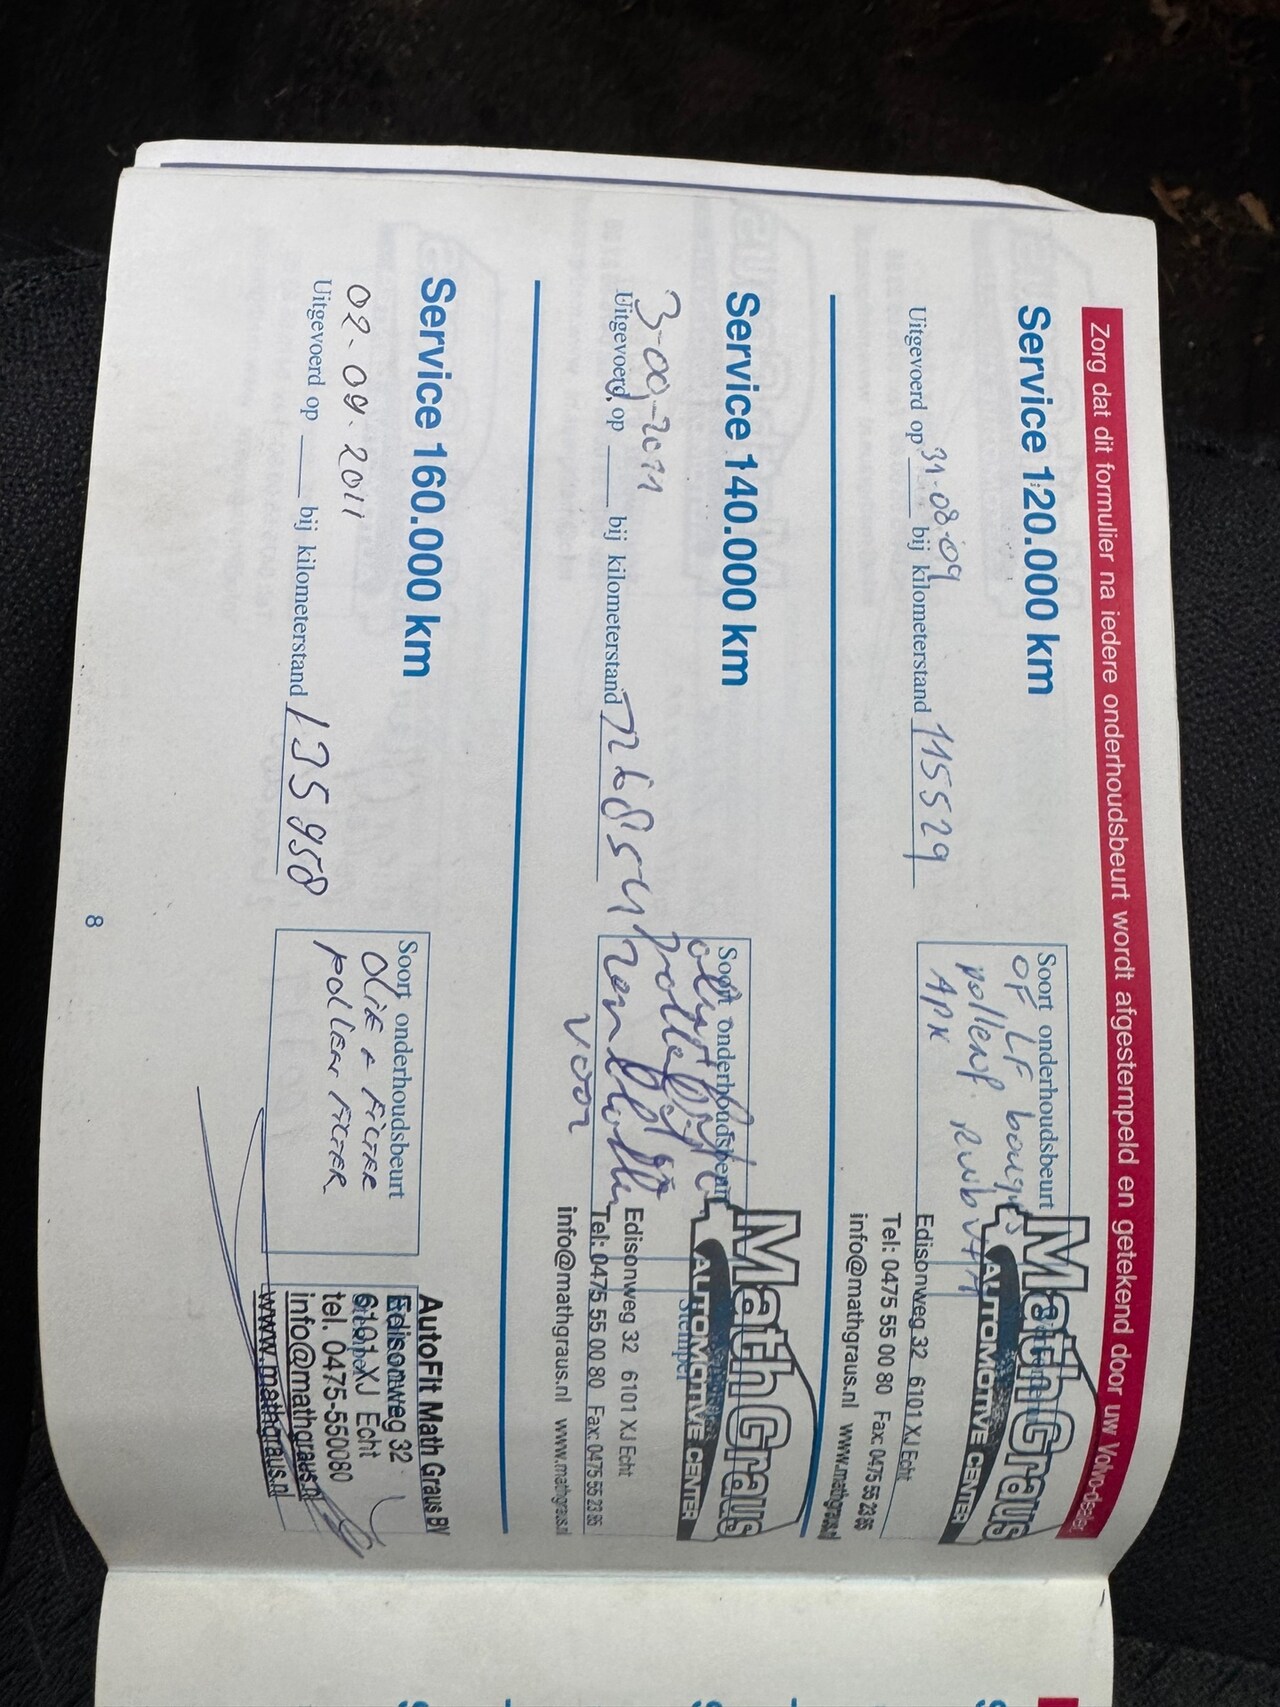 Zorg dat dit formulier na iedere onderhoudsbeurt wordt afgestempeld en getekend door uw Volvo-dealer
Service 120.000 km
Uitgevoerd op 31.08.09 bij kilometerstand 115529
Soort onderhoudsbeurt
OF LF bougies
pollenf. Rwb
APK
MathGraus
AUTOMOTIVE CENTER
Edisonweg 32 6101 XJ Echt
Tel: 0475 55 00 80 Fax: 0475 55 23 85
info@mathgraus.nl www.mathgraus.nl
Service 140.000 km
3-09-2011
Uitgevoerd op bij kilometerstand
Soort onderhoudsbeurt
voor
Stempel
MathGraus
AUTOMOTIVE CENTER
Edisonweg 32 6101 XJ Echt
Tel: 0475 55 00 80 Fax: 0475 55 23 85
info@mathgraus.nl www.mathgraus.nl
Service 160.000 km
02-09-2011
Uitgevoerd op bij kilometerstand 135958
Soort onderhoudsbeurt
OLIE + FILTER
POLLEN FILTER
AutoFit Math Graus BV
Edisonweg 32
6101 XJ Echt
tel. 0475-550080
info@mathgraus.nl
www.mathgraus.nl
8